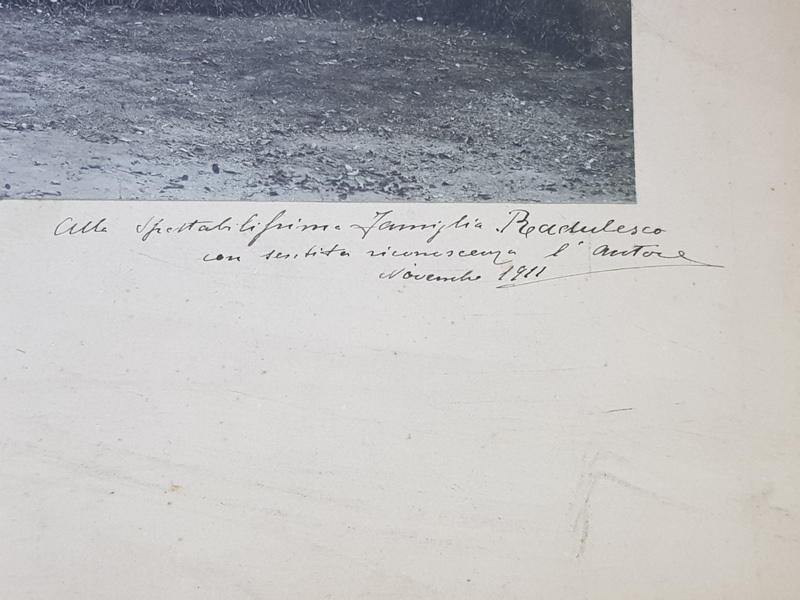 Alla Spettabilissima Famiglia Radulesco
con sentita riconoscenza l'autore
Novembre 1911